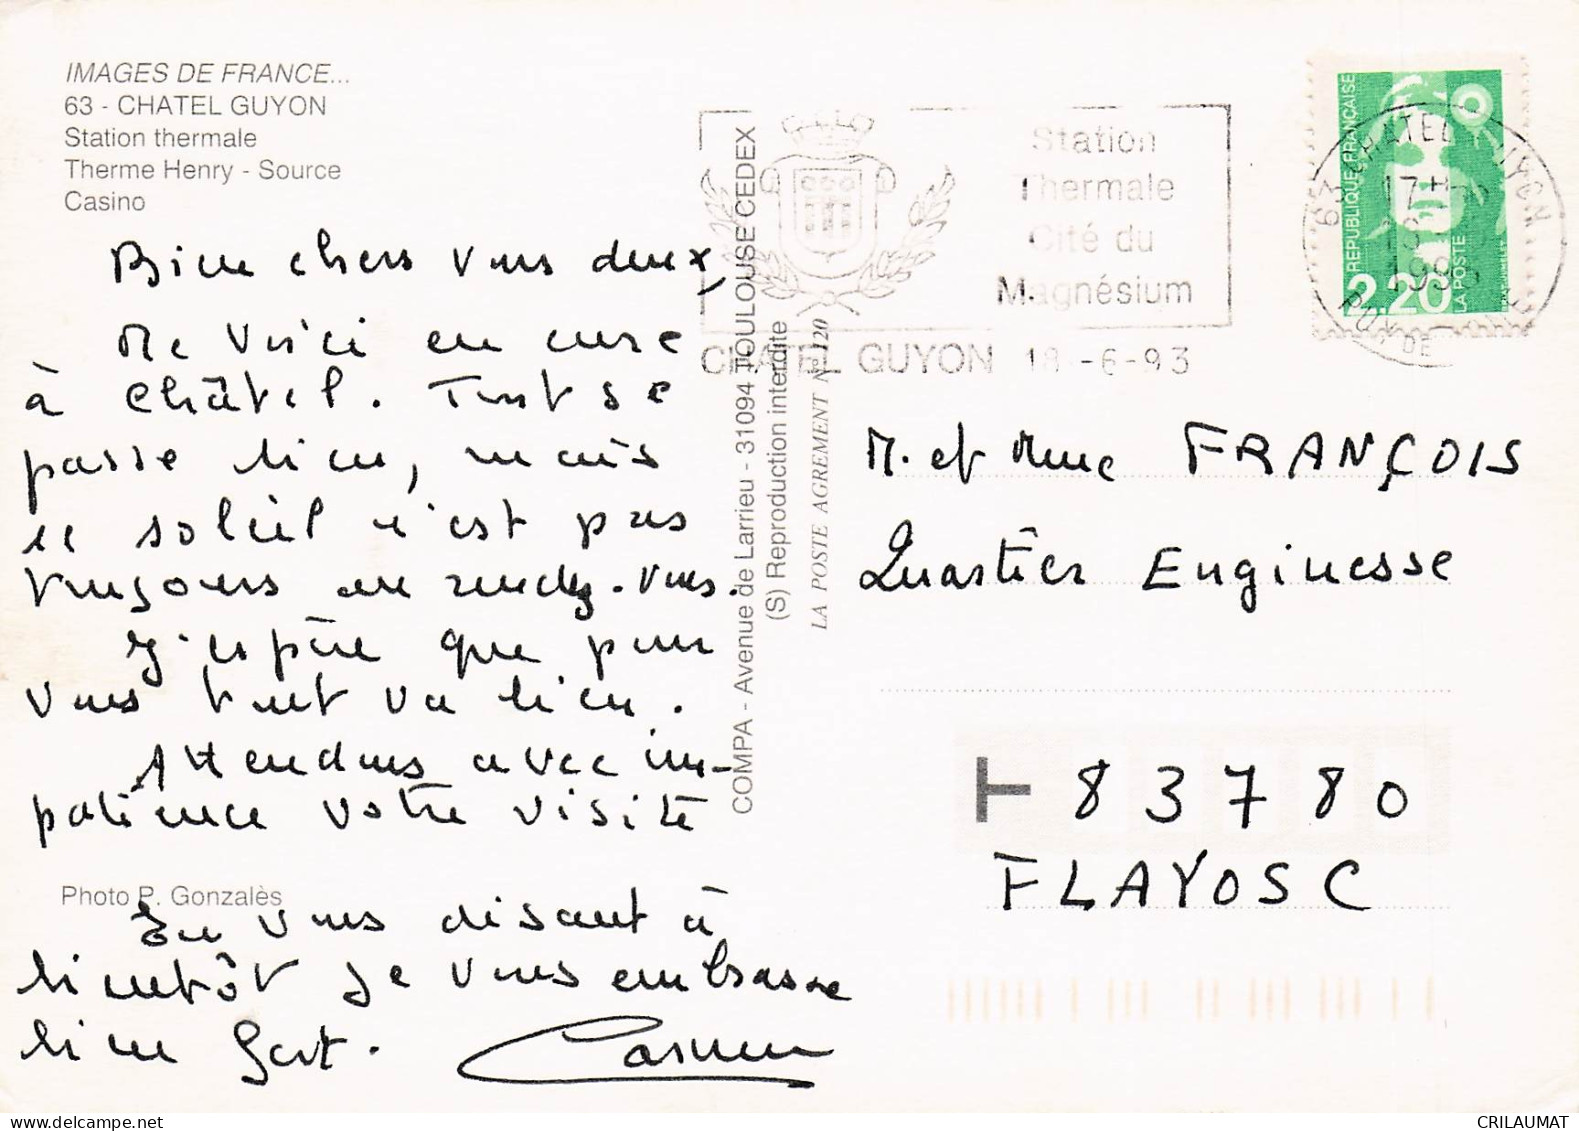 IMAGES DE FRANCE...
63 - CHATEL GUYON
Station thermale
Therme Henry - Source
Casino
Bien chers vous deux,
Me voici en cure
à Châtel. Tout se
passe bien, mais
le soleil n'est pas
toujours au rendez-vous.
J'espère que pour
vous tout va bien.
Attendons avec im-
patience votre visite
Photo P. Gonzalès
En vous disant à
bientôt je vous embrasse
bien fort. Carmen
COMPA - Avenue de Larrieu - 31094 TOULOUSE CEDEX
(S) Reproduction interdite
LA POSTE AGREMENT N° 120
Station
Thermale
Cité du
Magnésium
CHATEL GUYON 18-6-93
REPUBLIQUE FRANÇAISE
2.20
LA POSTE
63 CHATEL
17 H
18
1993
PUY DE
M. et Mme FRANÇOIS
Quartier Enginesse
83780
FLAYOSC
CRILAUMAT